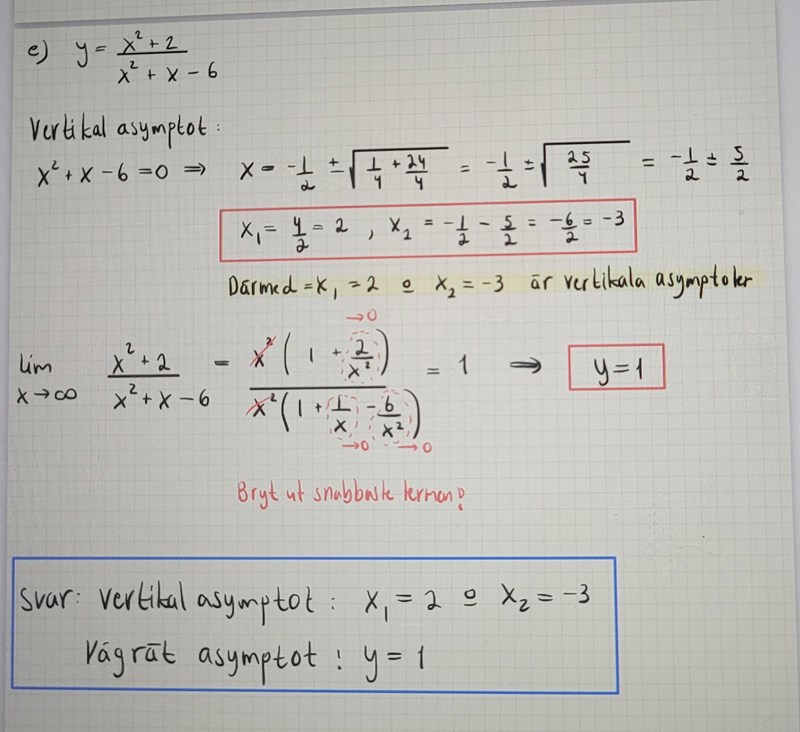 e) y = (x² + 2) / (x² + x - 6)
Vertikal asymptot :
x² + x - 6 = 0 ⇒ x = -1/2 ± √(1/4 + 24/4) = -1/2 ± √(25/4) = -1/2 ± 5/2
x₁ = 4/2 = 2 , x₂ = -1/2 - 5/2 = -6/2 = -3
Därmed = x₁ = 2 o x₂ = -3 är vertikala asymptoter
→0
lim x→∞ (x² + 2) / (x² + x - 6) = x²(1 + 2/x²) / x²(1 + 1/x - 6/x²) = 1 ⇒ y = 1
→0 →0
Bryt ut snabbaste termen!
Svar: vertikal asymptot : x₁ = 2 o x₂ = -3
Vågrät asymptot ! y = 1